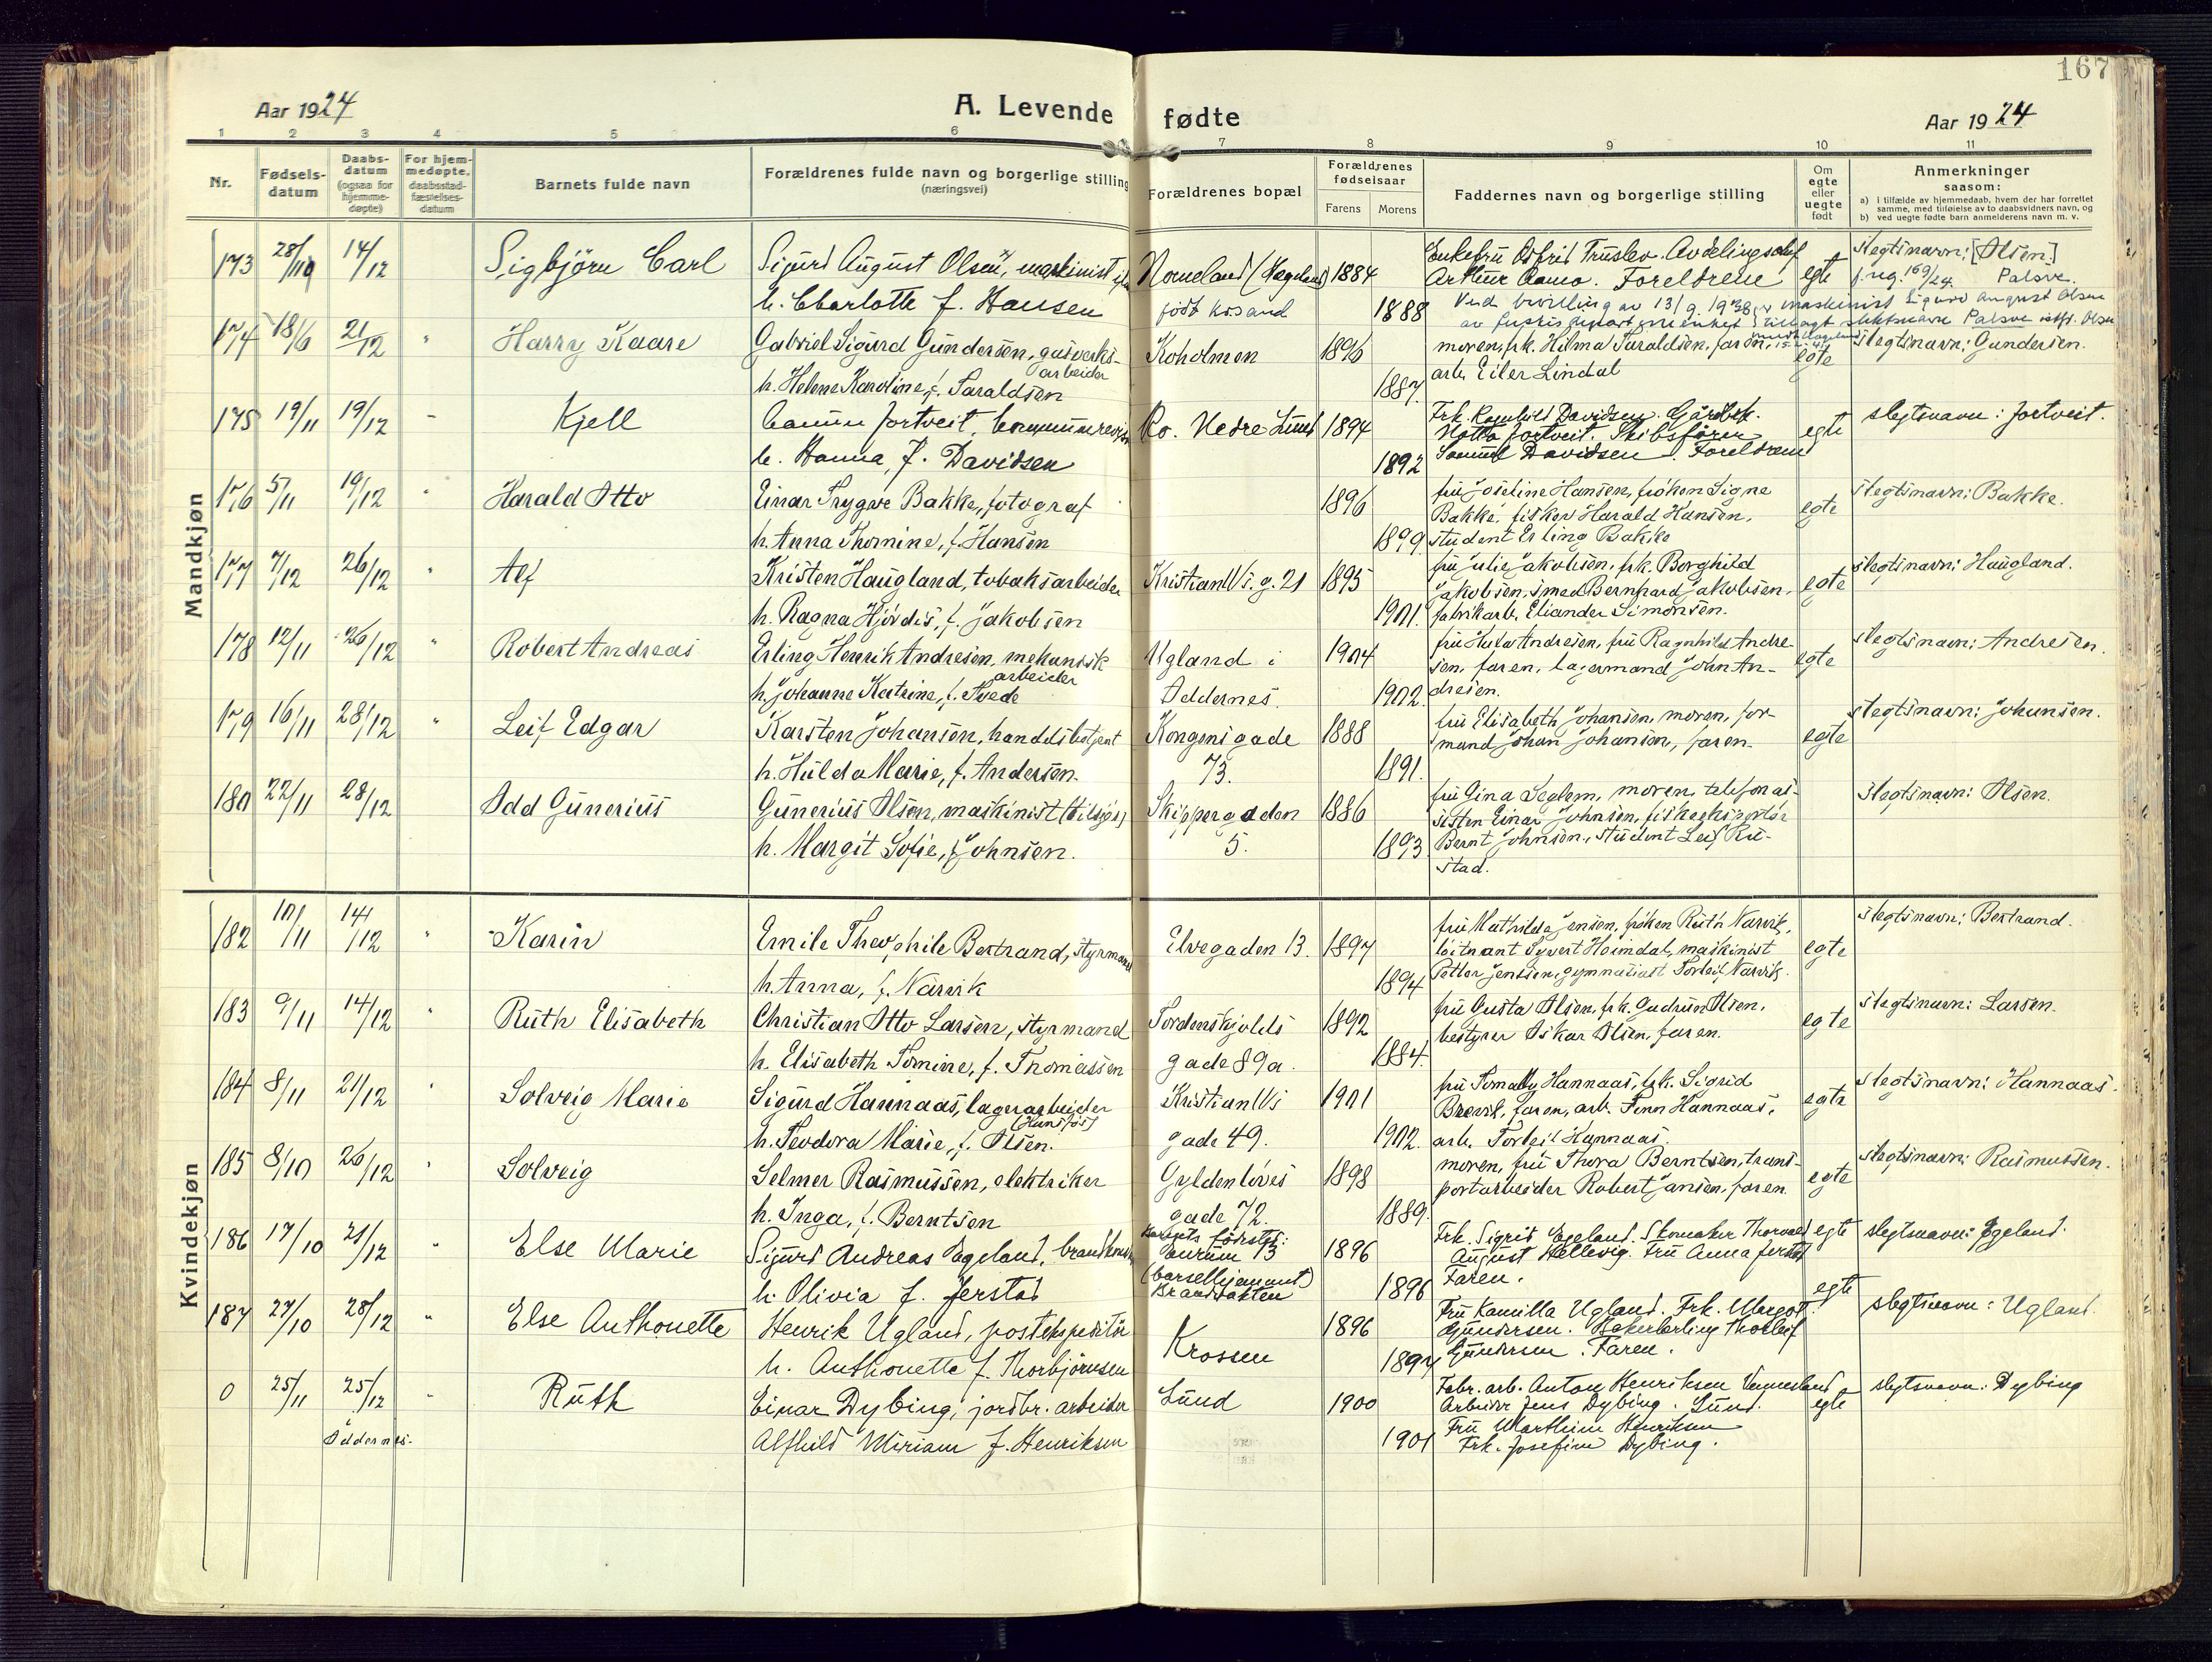 167
Aar 1924
A. Levende fødte
Aar 1924
1 2 3 4 5 6 7 8 9 10 11
Nr.
Fødselsdatum
Daabsdatum (ogsaa for hjemmedøpte)
For hjemmedøpte, daabsstadfæstelsesdatum
Barnets fulde navn
Forældrenes fulde navn og borgerlige stilling (næringsvei)
Forældrenes bopæl
Forældrenes fødselsaar
Farens Morens
Faddernes navn og borgerlige stilling
Om egte eller uegte født
Anmerkninger saasom:
a) i tilfælde av hjemmedaab, hvem der har forrettet samme, med tilføielse av to daabsvidners navn, og
b) ved uegte fødte barn anmelderens navn m. v.
Mandkjøn
173 28/10 14/12 Sigbjörn Carl Sigurd August Olsen, maskinist Homeland (Hægeland) 1884 Enkefru Astrid Truslev. Avdelingschef egte Slegtsnavn: [Olsen]
Arthur Aamo. Foreldrene f. reg. 169/24. Palsve.
h. Charlotte f. Hansen født Krsand 1888 Ved bevilling av 13/9 1938 maskinist Sigurd August Olsen
tillagt slektsnavn Palsve istf. Olsen
174 18/6 21/12 " Harry Kaare Gabriel Sigurd Gundersen, gasverks- Koholmen 1896 moren, frk. Hilma Taraldsen, faren, egte Slegtsnavn: Gundersen.
arbeider arb. Eiler Lindal
h. Helene Karoline, f. Taraldsen 1887.
175 19/11 19/12 " Kjell Aanun Fortveit, kommunerevisor Ko. Nedre Lund 1894 Frk. Ragnhild Davidsen. Gårdbr. egte slegtsnavn: Fortveit.
Notto Fortveit. Skibsfører
h. Hanna, f. Davidsen 1892 Samuel Davidsen. Foreldrene
176 5/11 19/12 " Harald Otto Einar Trygve Bakke, fotograf 1896 fru Joseline Hansen, frøken Signe egte Slegtsnavn: Bakke.
Bakke, fisker Harald Hansen,
h. Anna Thomine, f. Hansen 1899. student Erling Bakke
177 7/12 26/12 " Alf Kristen Haugland, tobaksarbeider Kristian IVs. g. 21 1895 fru Julie Jakobsen, frk. Borghild egte Slegtsnavn: Haugland.
Jakobsen, smed Bernhard Jakobsen,
h. Ragna Hjørdis, f. Jakobsen 1901. fabrikarb. Eliander Simonsen.
178 12/11 26/12 " Robert Andreas Erling Henrik Andresen, mekanisk Ugland i 1904 fru Hulda Andresen, fru Ragnhild Andre- egte Slegtsnavn: Andresen.
arbeider sen, faren, lagermand John An-
h. Johanne Katrine, f. Tvede Oddernes. 1902. dresen.
179 16/11 28/12 " Leif Edgar Karsten Johansen, handelsbetjent Kongensgade 1888 fru Elisabeth Johansen, moren, for- egte Slegtsnavn: Johansen.
mand Johan Johansen, faren.
h. Hulda Marie, f. Andersen. 73. 1891.
180 22/11 28/12 Odd Gunerius Gunerius Olsen, maskinist (tilsjøs) Skippergaden 1886 fru Gina Seglem, moren, telefonas- Slegtsnavn: Olsen.
sisten Einar Johnsen, fiskeeksportør
h. Margit Sofie, f. Johnsen. 5. 1893 Bernt Johnsen, student Leif Ru-
stad.
Kvindekjøn
182 10/11 14/12 " Karin Emile Theophile Bertrand, styrmand Elvegaden 13. 1897 fru Mathilde Jensen, frøken Ruth Narvik, egte Slegtsnavn: Bertrand.
løitnant Syvert Heimdal, maskinist
h. Anna, f. Narvik 1894 Petter Jenssen, gymnasiast Torleif Narvik.
183 9/11 14/12 " Ruth Elisabeth Christian Otto Larsen, styrmand Tordenskjolds 1892 fru Gusta Olsen, frk. Gudrun Olsen, egte Slegtsnavn: Larsen.
bestyrer Oskar Olsen, faren.
h. Elisabeth Tomine, f. Thomassen gade 89a. 1884.
184 8/11 21/12 " Solveig Marie Sigurd Hannaas, lagerarbeider Kristian IVs 1901 fru Tomally Hannaas, frk. Sigrid egte Slegtsnavn: Hannaas.
(Hunsfos) Brevik, faren, arb. Finn Hannaas,
h. Teodora Marie, f. Olsen. gade 49. 1902. arb. Torleif Hannaas.
185 8/10 26/12 " Solveig Selmer Rasmussen, elektriker Gyldenløves 1898 moren, fru Thora Berntsen, trans- egte Slegtsnavn: Rasmussen.
portarbeider Robert Jansen, faren
h. Inga, f. Berntsen gade 72. 1889.
186 17/10 21/12 " Else Marie Sigurd Andreas Egeland, brandkonst. Barnets fødsted: 1896 Frk. Sigrid Egeland. Skomaker Thorvald egte slegtsnavn: Egeland.
13 August Hellevig. Fru Anna Jerstad
h. Olivia f. Jerstad Brandvakten 1896 Faren.
187 27/10 28/12 " Else Anthonette Henrik Ugland, postekspeditör Krossen 1896 Fru Kamilla Ugland. Frk. Margot egte slegtsnavn: Ugland.
Gundersen. Bakerlærling Thorleif
h. Anthonette f. Thorbjörnsen 1897 Gundersen. Faren.
0 25/11 25/12 " Ruth Einar Dybing, jordbr. arbeider Lund 1900 Fabr. arb. Anton Henriksen Vennesland egte slegtsnavn: Dybing
Oddernes. Arbeider Jens Dybing. Lund.
Alfhild Miriam f. Henriksen 1901 Fru Marthine Henriksen
Frk. Josefine Dybing.